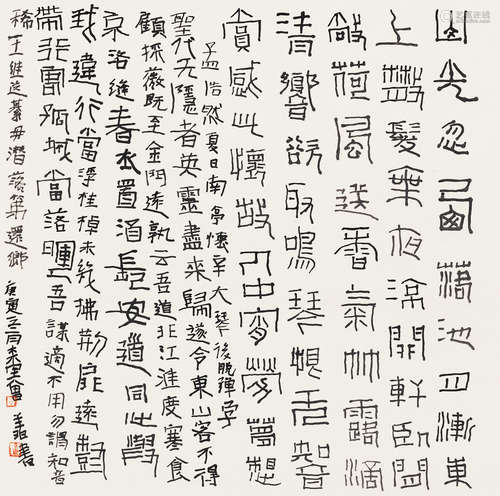 山光忽西落池月漸東
上散髮乘夜涼開軒臥閒
敞荷風送香氣竹露滴
清響欲取鳴琴恨无知音
賞感此懷故人中宵勞夢想
孟浩然夏日南亭懷辛大 琴後脫彈字
聖代无隱者英靈盡來歸遂令東山客不得
顧採薇既至金門遠孰云吾道非江淮度寒食
京洛縫春衣置酒長安道同心與
我違行當浮桂棹未幾拂荊扉遠樹
帶行客孤城當落暉吾謀適不用勿謂知音
稀王維送綦毋潛落第還鄉 庚寅 書